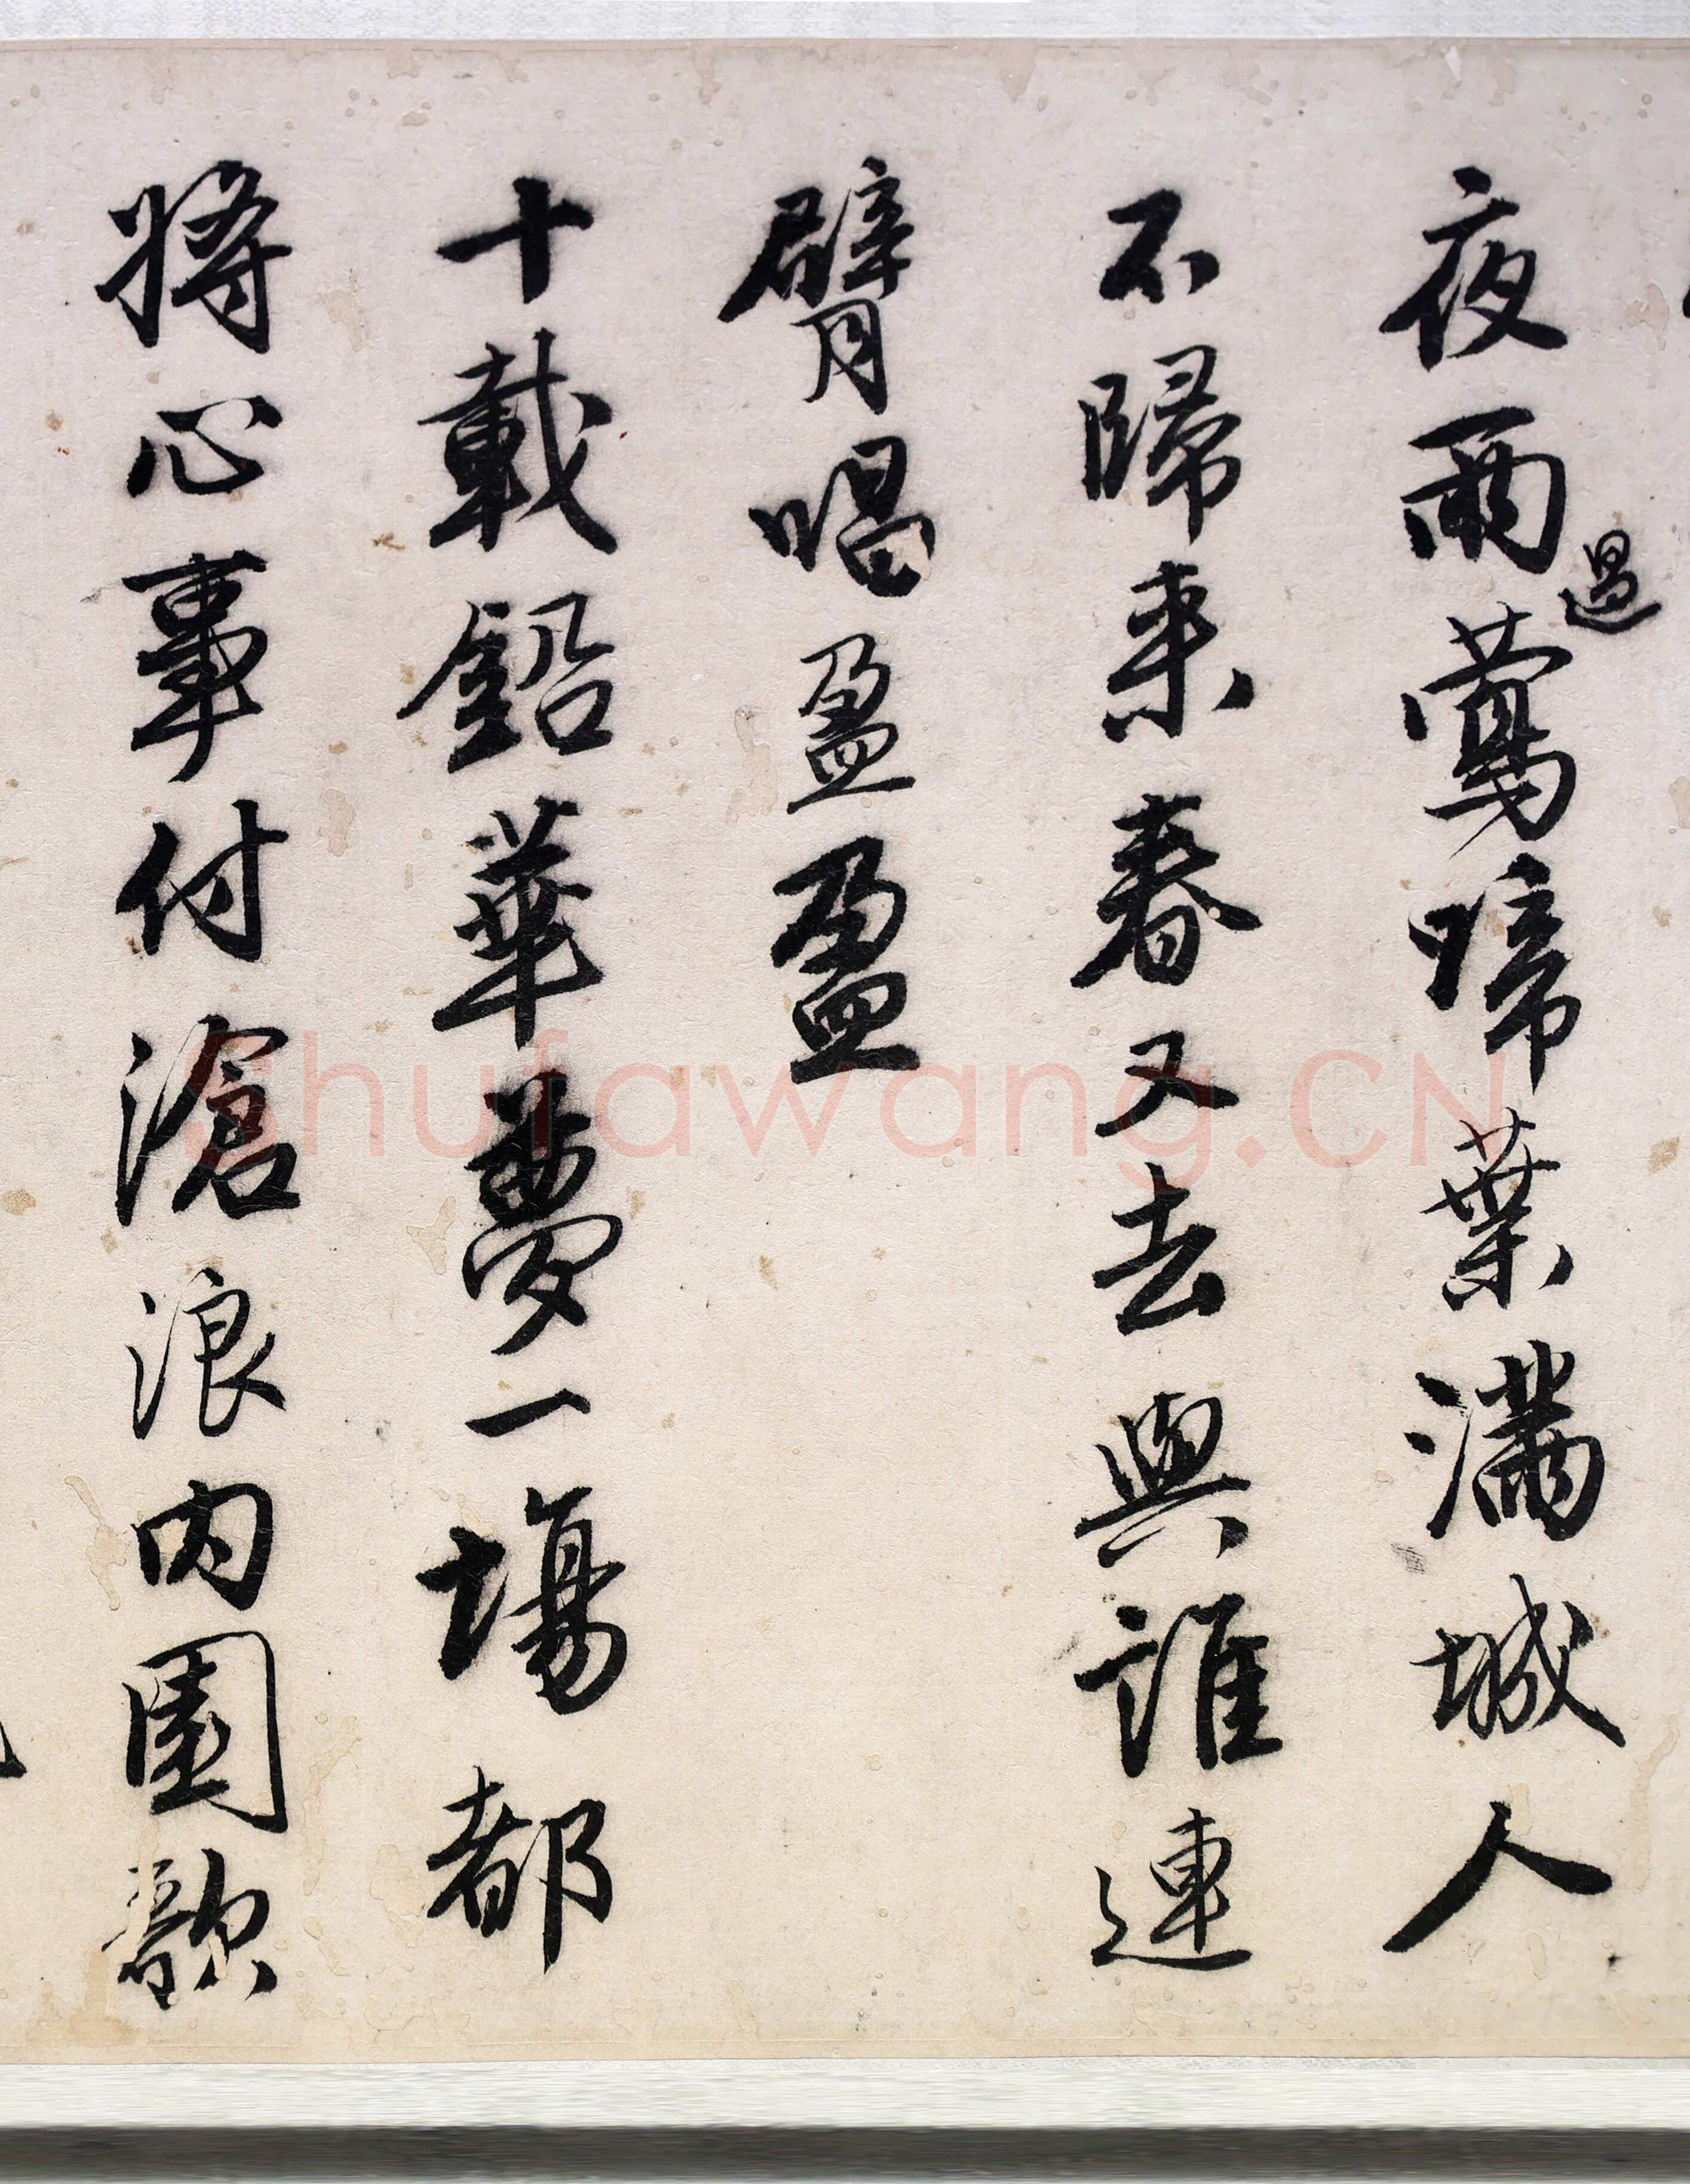 夜雨過鶯啼葉滿城人
不歸来春又去與誰連
臂唱盈盈
十載鉛華夢一場都
將心事付滄浪內園歌
Shufawang.CN